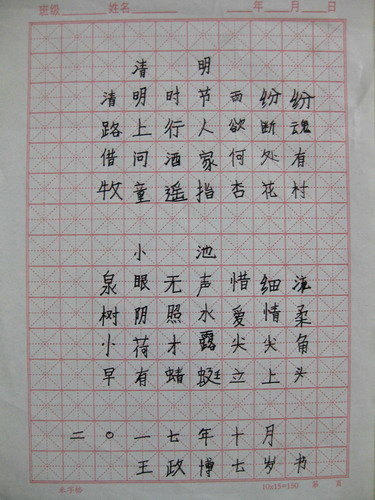 班级 姓名 年 月 日
清明
清明时节雨纷纷
路上行人欲断魂
借问酒家何处有
牧童遥指杏花村
小池
泉眼无声惜细流
树阴照水爱情柔
小荷才露尖尖角
早有蜻蜓立上头
二〇一七年十月
王政博七岁书
米字格 10x15=150 第 页